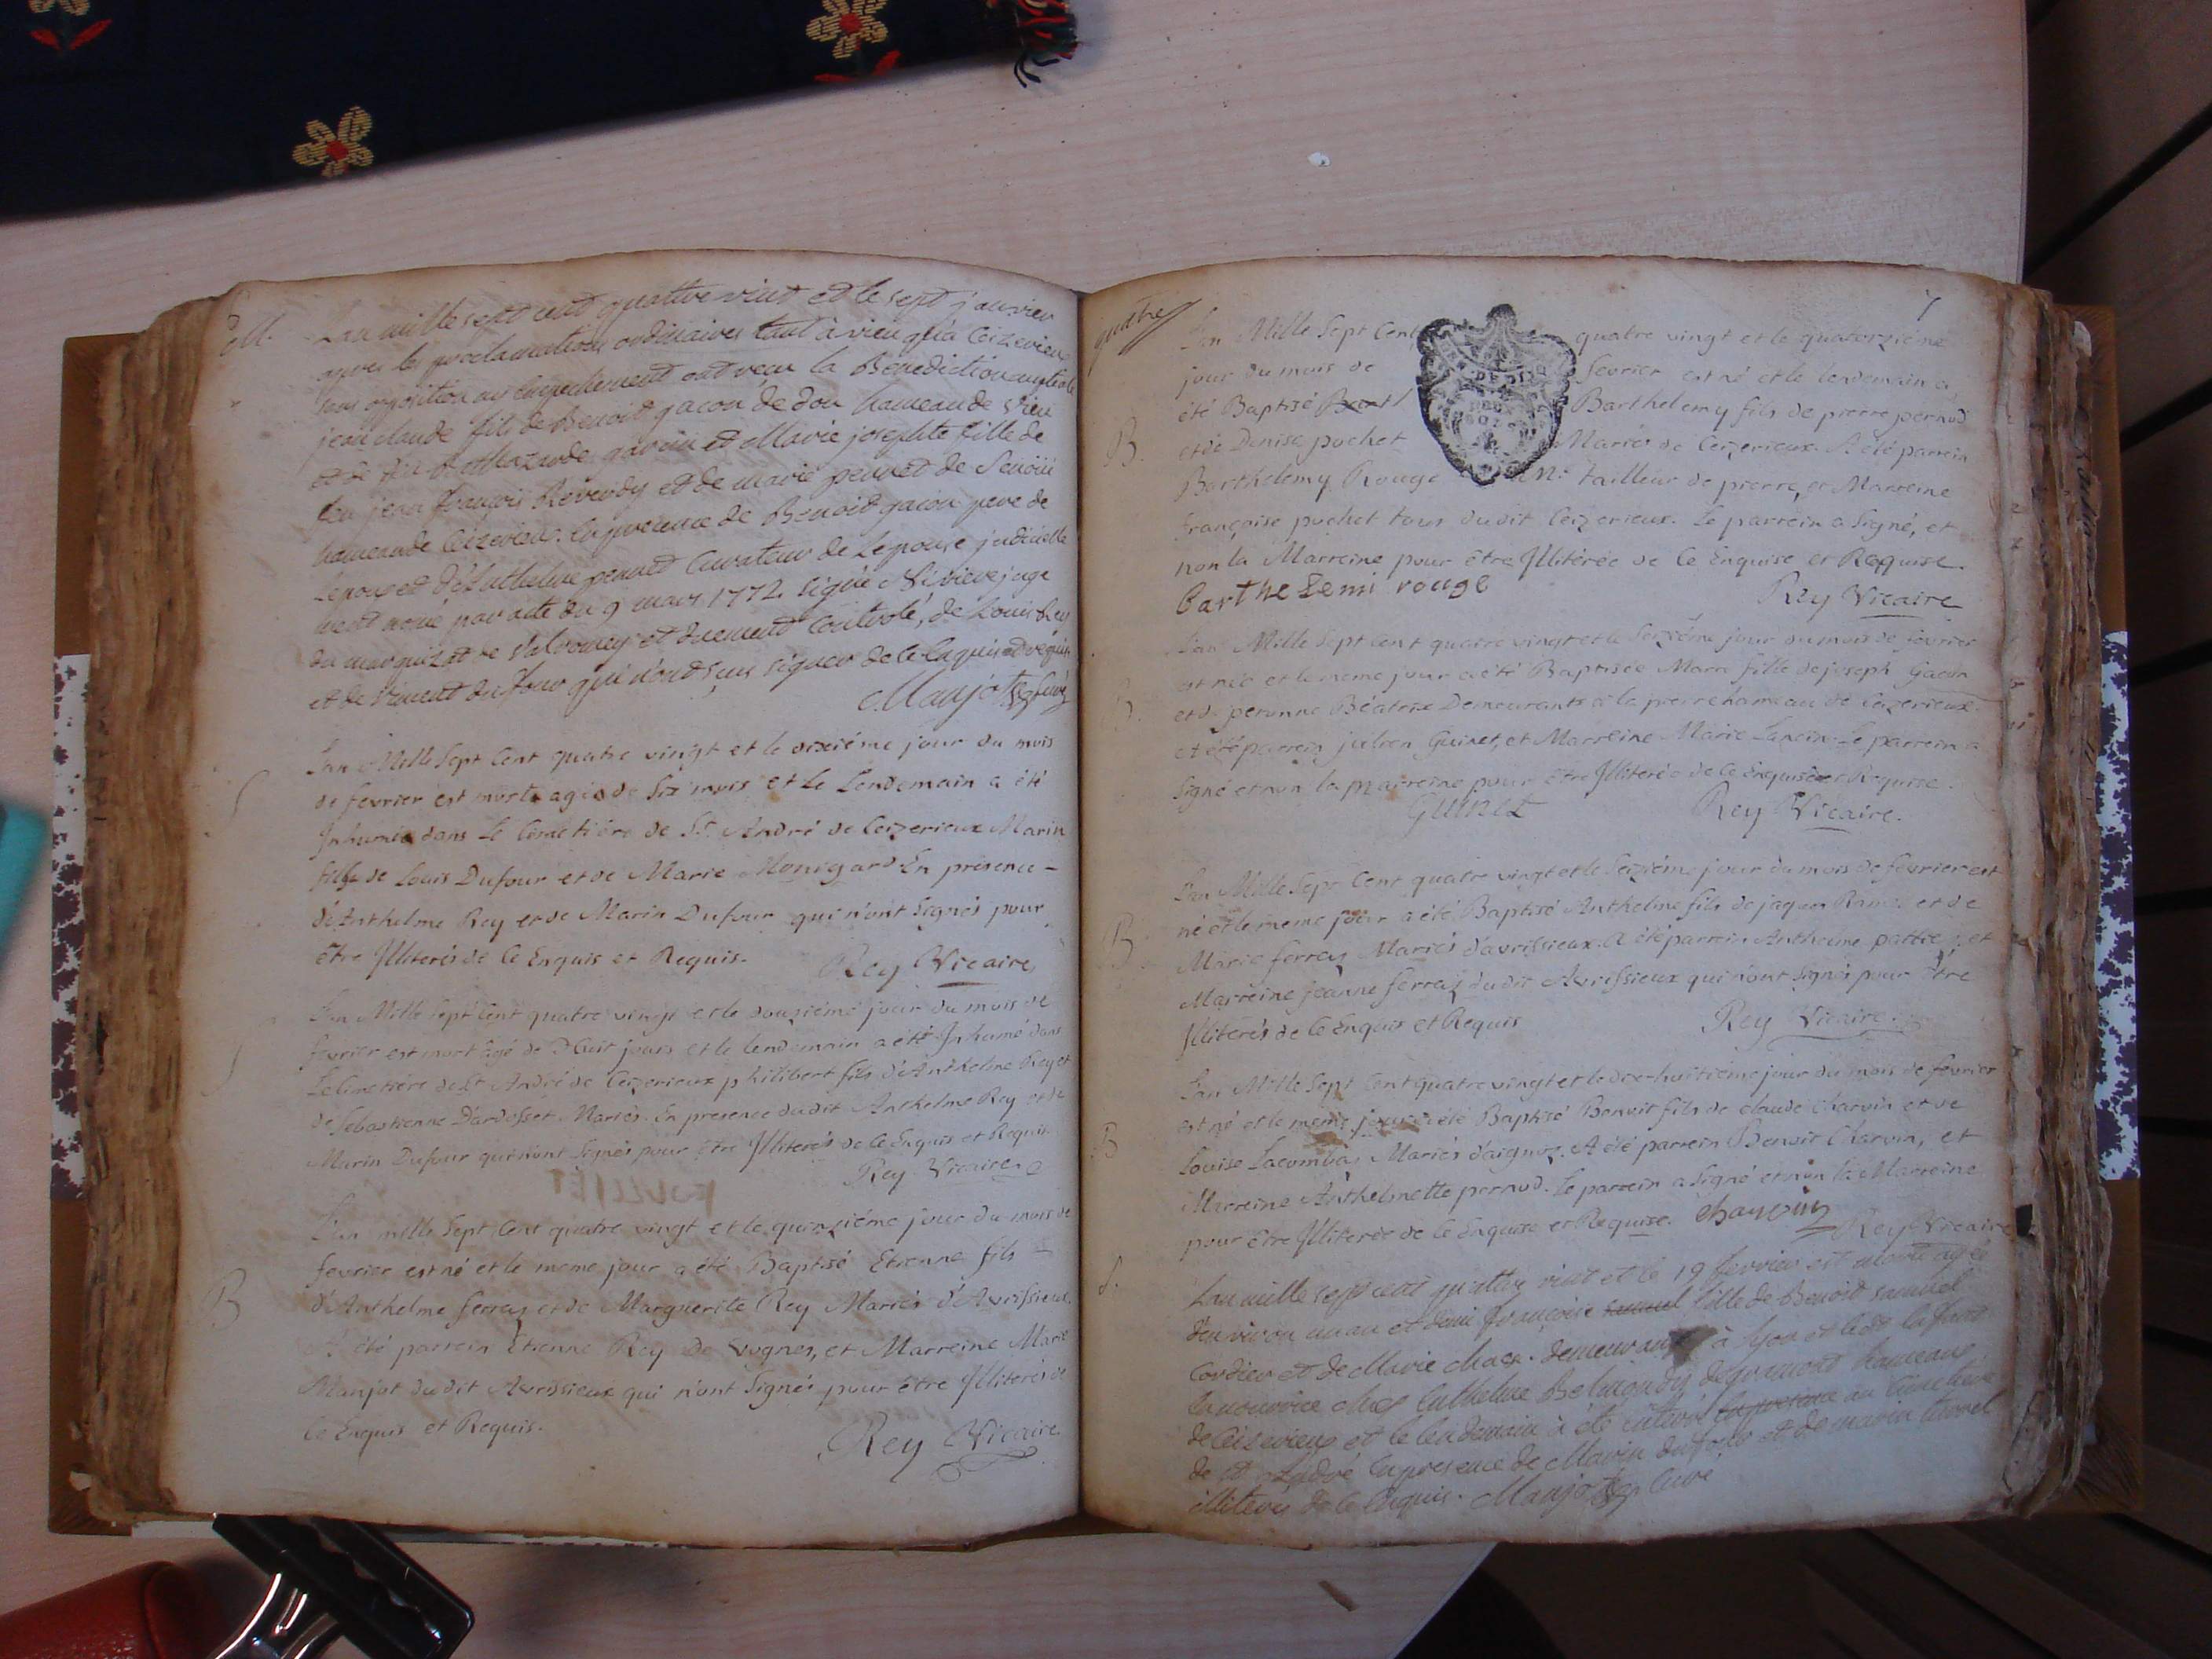 M.
L'an mille sept cent quattre vint et le sept janvier
apres les proclamations ordinaires tant à vieu qu'a Ceizerieu
sans opposition ny empechement ont reçu la Benediction nuptiale
jean claude fils de Benoit gacon de don hameau de Vieu
et de et Marie josephte fille de
feu jean françois Reverdy et de marie perret de
hameau de Ceizerieu. En presence de Benoit gacon pere de
l'epoux et d'Anthelme perret Curateur de l'epouse judiciellement
nomé par acte du 9 mars 1772. signé juge
du marquizat de Valromey et duement Controlé, de Louis Rey
et de Vincent du four qui n'ont sçus signer de ce enquis et requis
Manjot Curé
S
L'an Mille Sept Cent quatre vingt et le dixiéme jour du mois
de fevrier est morte agée de Six mois et le Lendemain a été
Inhumée dans Le Cimetiére de St. André de Ceizerieux Marin
fils de Louis Dufour et de Marie Monigard En présence -
d'Anthelme Rey et de Marin Dufour qui n'ont Signés pour
être Illiterés de Ce Enquis et Requis.
Rey Vicaire
S
L'an Mille Sept Cent quatre vingt et le douziéme jour du mois de
fevrier est mort agé de Huit jours et le lendemain a été Inhumé dans
Le Cimetiére de St. André de Ceizerieux philibert fils d'Anthelme Rey et
de Sebastienne Dardosset Mariés. En presence dudit Anthelme Rey et de
Marin Dufour qui n'ont Signés pour être Illiterés de Ce Enquis et Requis
Rey Vicaire
B
L'an mille Sept Cent quatre vingt et le quinziéme jour du mois de
fevrier est né et le meme jour a été Baptisé Etienne fils -
d'Anthelme ferraz et de Marguerite Rey Mariés d'Avrissieux.
A été parrein Etienne Rey de Vognes, et Marreine Marie
Manjot dudit Avrissieux qui n'ont Signés pour être Illiterés de
Ce Enquis et Requis.
Rey Vicaire
quatre
7
L'an Mille Sept Cent quatre vingt et le quatorziéme
jour du mois de fevrier est né et le lendemain a
été Baptisé Bart Barthelemy fils de pierre pernod
B.
et de Denise pochet Mariés de Ceizerieux. A été parrein
Barthelemy Rouge tailleur de pierre, et Marreine
françoise pochet tous dudit Ceizerieux. Le parrein a Signé, et
non la Marreine pour être Illiterée de Ce Enquise et Requise.
BartheLemi rouge
Rey Vicaire
L'an Mille Sept Cent quatre vingt et le Seiziéme jour du mois de fevrier
est née et le meme jour a été Baptisée Marie fille de joseph Gacon
B.
et de peronne Béatrix Demeurants à la pierre hameau de Ceizerieux.
A été parrein julien Guinet, et Marreine Marie Lancin Le parrein a
Signé et non la Marreine pour être Illiterée de Ce Enquise et Requise.
GUINET
Rey Vicaire.
L'an Mille Sept Cent quatre vingt et le Seiziéme jour du mois de fevrier est
né et le meme jour a été Baptisé Anthelme fils de jaques et de
B
Marie ferraz Mariés d'avrissieux. A été parrein Anthelme et
Marreine jeanne ferraz dudit Avrissieux qui n'ont Signés pour être
Illiterés de Ce Enquis et Requis
Rey Vicaire
L'an Mille Sept Cent quatre vingt et le dix-huitiéme jour du mois de fevrier
est né et le meme jour a été Baptisé Benoit fils de claude Charvin et de
B
Louise Lacombaz Mariés d'aignoz. A été parrein Benoit Charvin, et
Marreine Anthelmette pernod. Le parrein a Signé et non la Marreine
pour être Illiterée de Ce Enquise et Requise. charvin
Rey Vicaire
S.
L'an mille sept cent quattre vint et le 19 fevrier est morte agée
d'environ un an et demi françoise fille de Benoit samuel
Cordier et de Marie demeurants à lyon et
la nourrice chez Anthelme Belmondy de gramont hameau
de Ceizerieu et le lendemain à été enterré au Cimetiere
de st. André En presence de Marin dufour et de marin
illiterés de ce Enquis. Manjot Curé